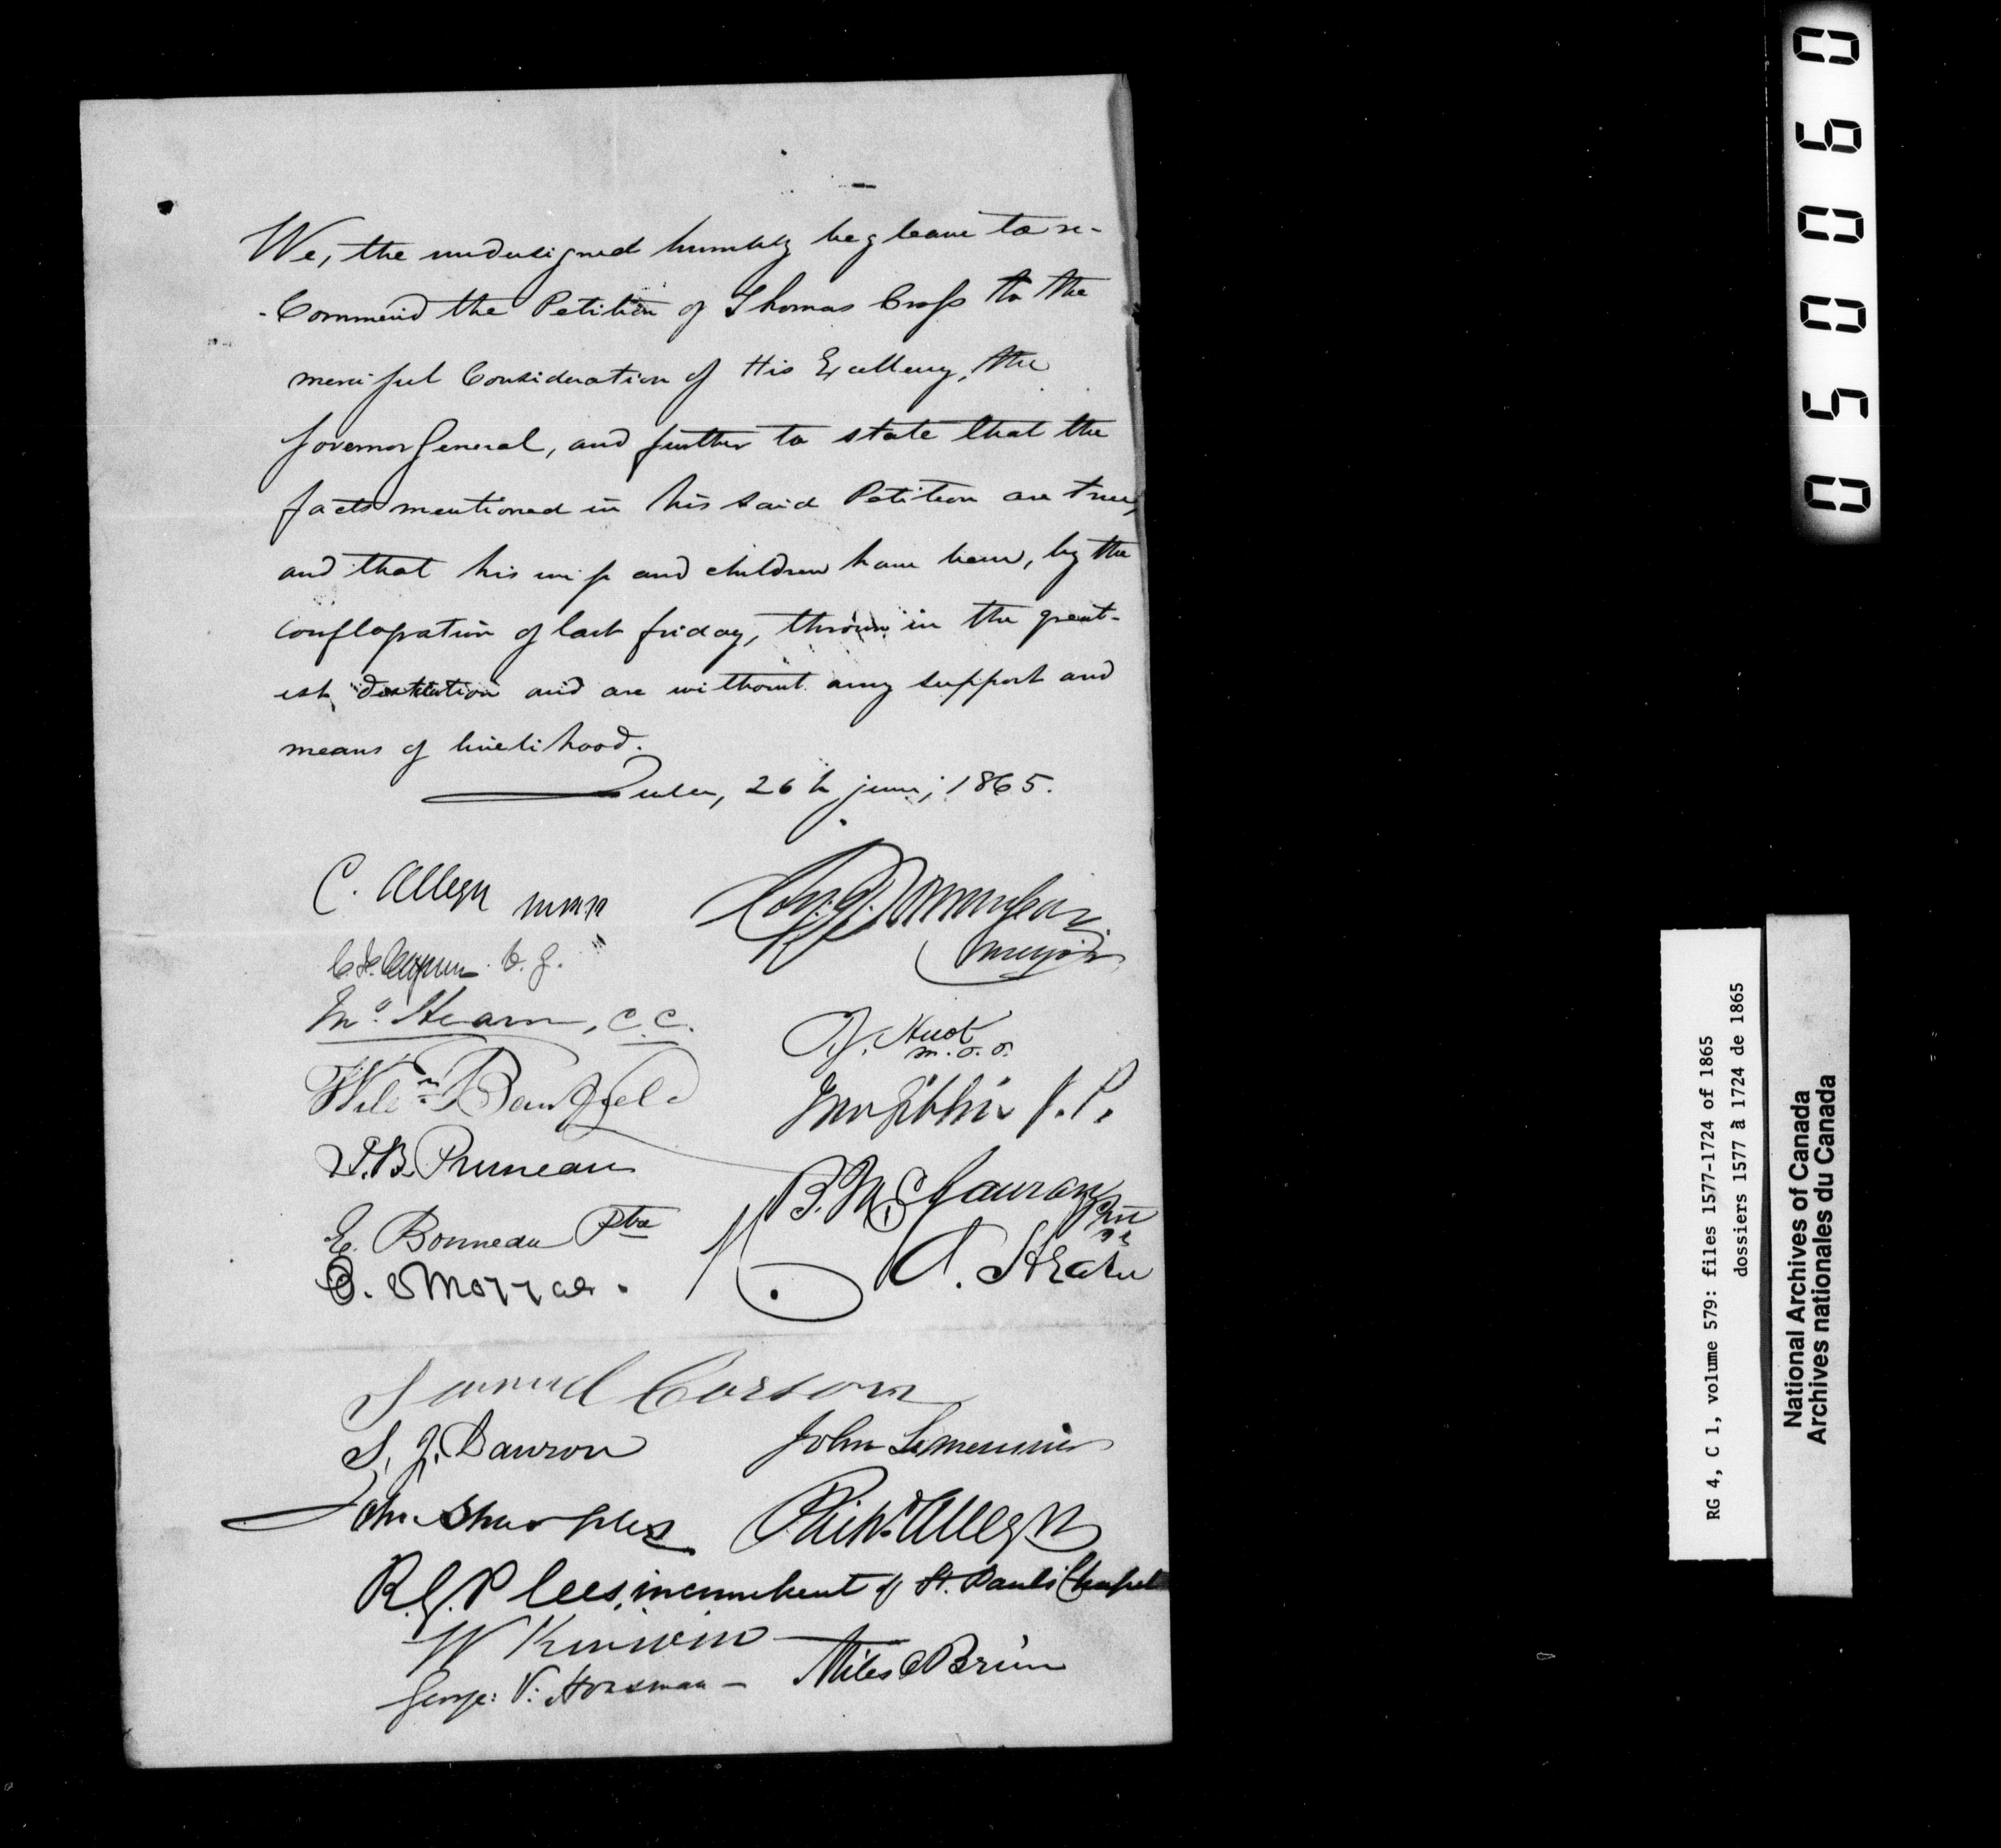 We, the undersigned humbly beg leave to re-
-commend the Petition of Thomas Cross to the
merciful Consideration of His Excellency, the
Governor General, and further to state that the
facts mentioned in his said Petition are true,
and that his wife and children have been, by the
conflagration of last friday, thrown in the great-
est destitution and are without any support and
means of livelihood.
Quebec, 26th june, 1865.
C. Alleyn M.P.P.
V. G.
Mw. Hearn, C.C.
Willm. Banfield
J.B. Pruneau
E. Bonneau Ptre
O.
mayor
J. Huot
M.P.P.
J.P.
B. McGauran Ptre
A.
Samuel Corson
S. J. Dawson
John Lemesurier
John Sharples
Richd. Alleyn
R. G. Plees, incumbent of St. Paul's Chapel
W Kirwin
George: V: Horsman -
Miles OBrien
050060
RG 4, C 1, volume 579: files 1577-1724 of 1865
dossiers 1577 à 1724 de 1865
National Archives of Canada
Archives nationales du Canada